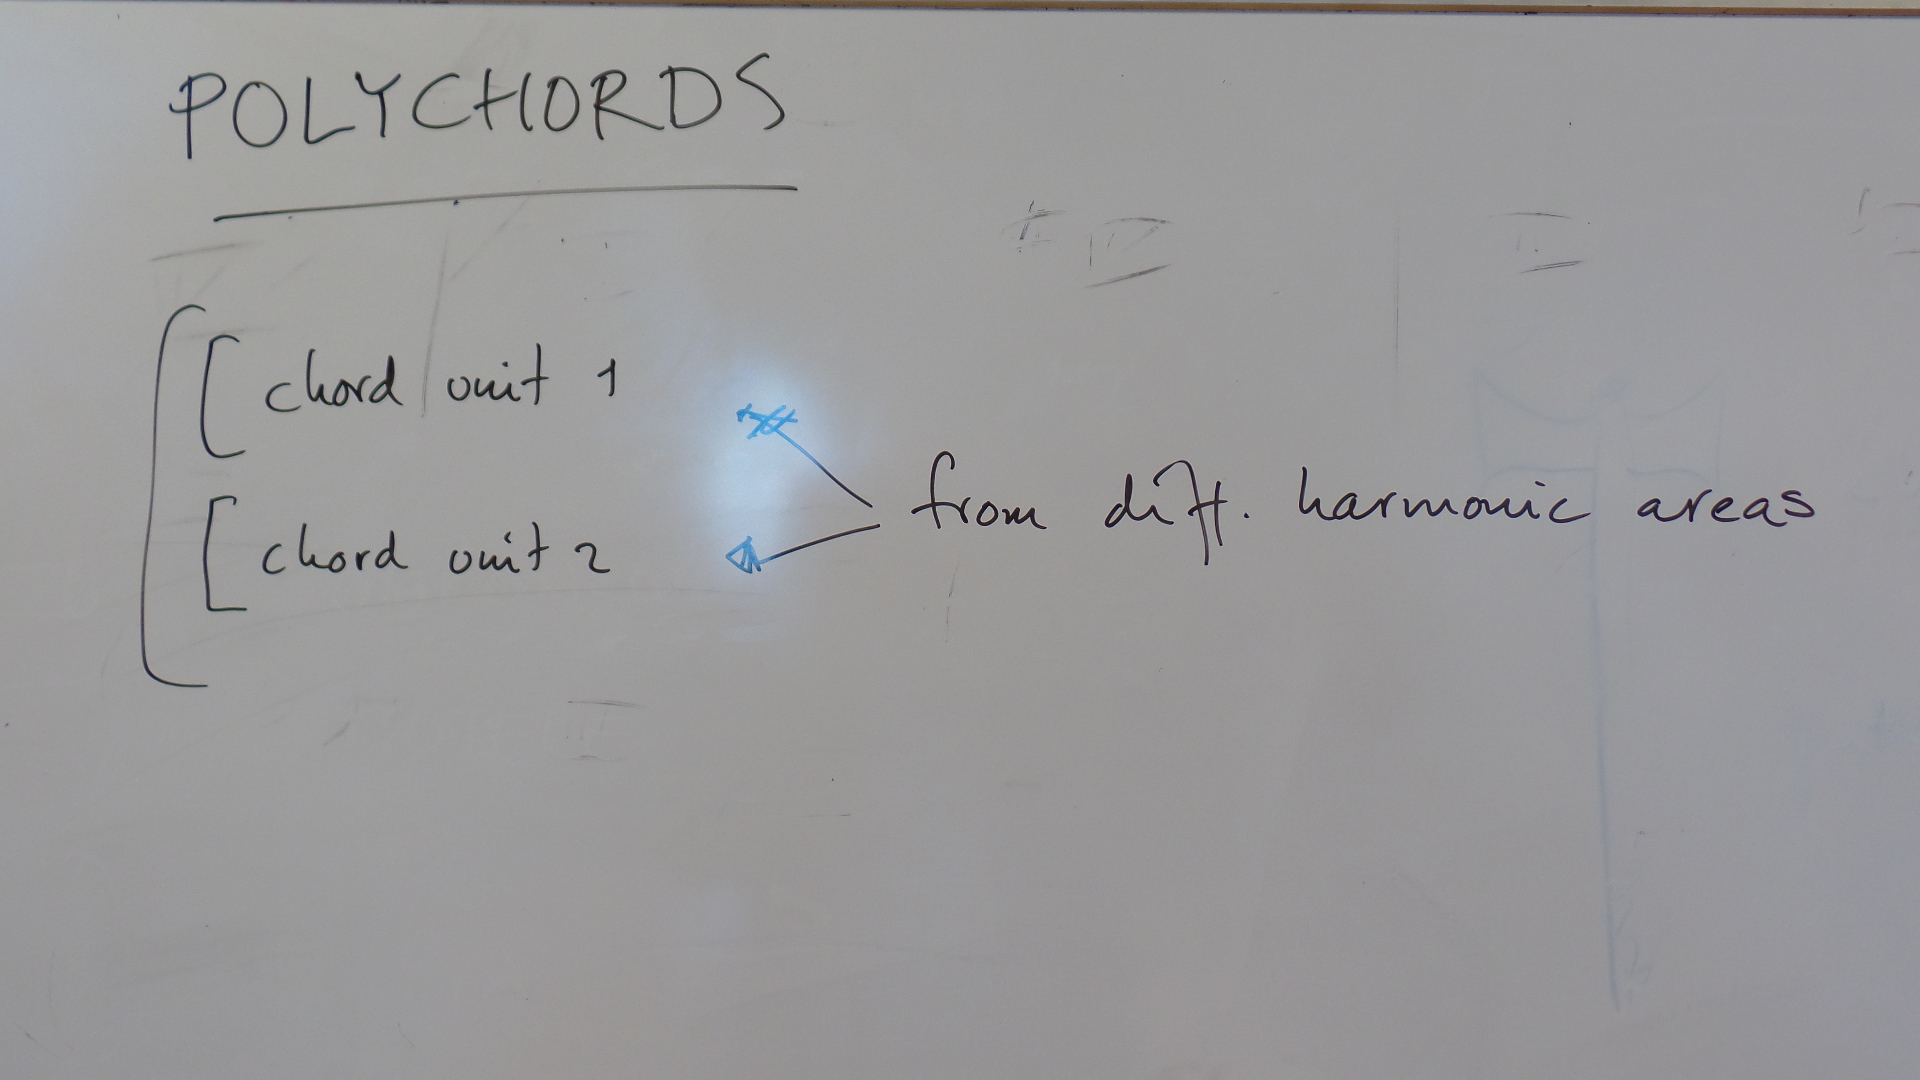 POLYCHORDS
chord unit 1
from diff. harmonic areas
chord unit 2